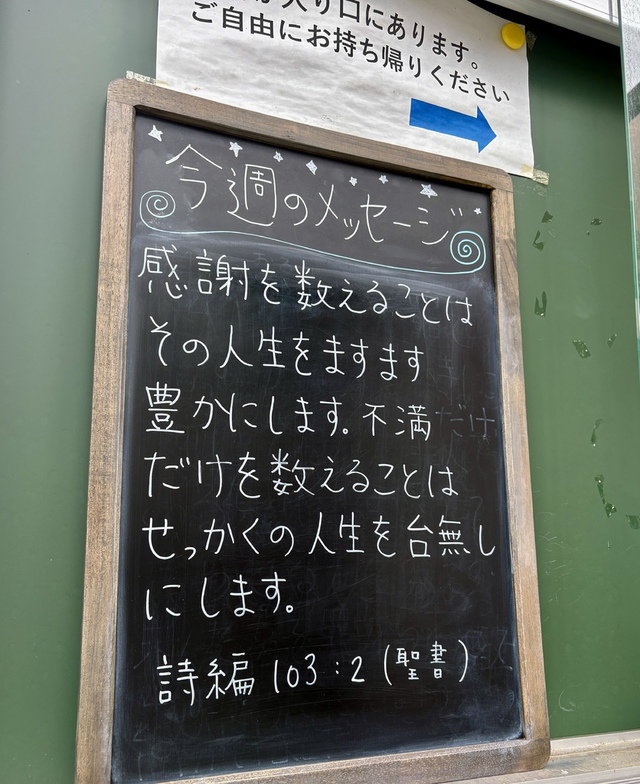 入り口にあります。
ご自由にお持ち帰りください
今週のメッセージ
感謝を数えることは
その人生をますます
豊かにします。不満
だけを数えることは
せっかくの人生を台無し
にします。
詩編 103:2 (聖書)